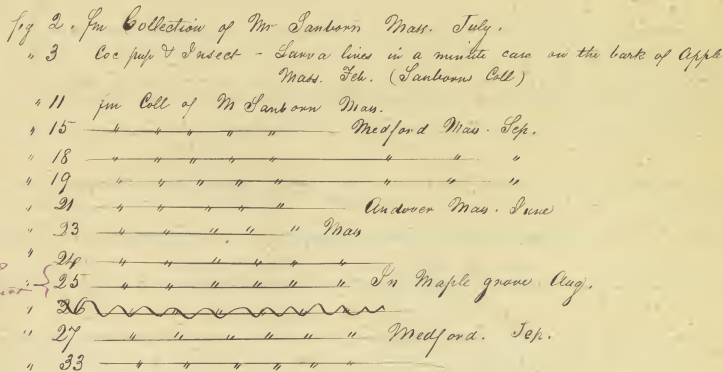 fig 2. fm Collection of Mr Sanborn Mass. July.
" 3 Coc pup & Insect - Larva lives in a minute case on the bark of Apple
Mass. Feb. (Sanborns Coll)
" 11 fm Coll of M Sanborn Mas.
" 15 " " " " " Medford Mas. Sep.
" 18 " " " " " " " "
" 19 " " " " " " " "
" 21 " " " " " Andover Mas. June
" 23 " " " " " " Mas
" 24 " " " " " "
" 25 " " " " " " In Maple grove Aug.
" 26
" 27 " " " " " " Medford. Sep.
" 33 " " " " " "